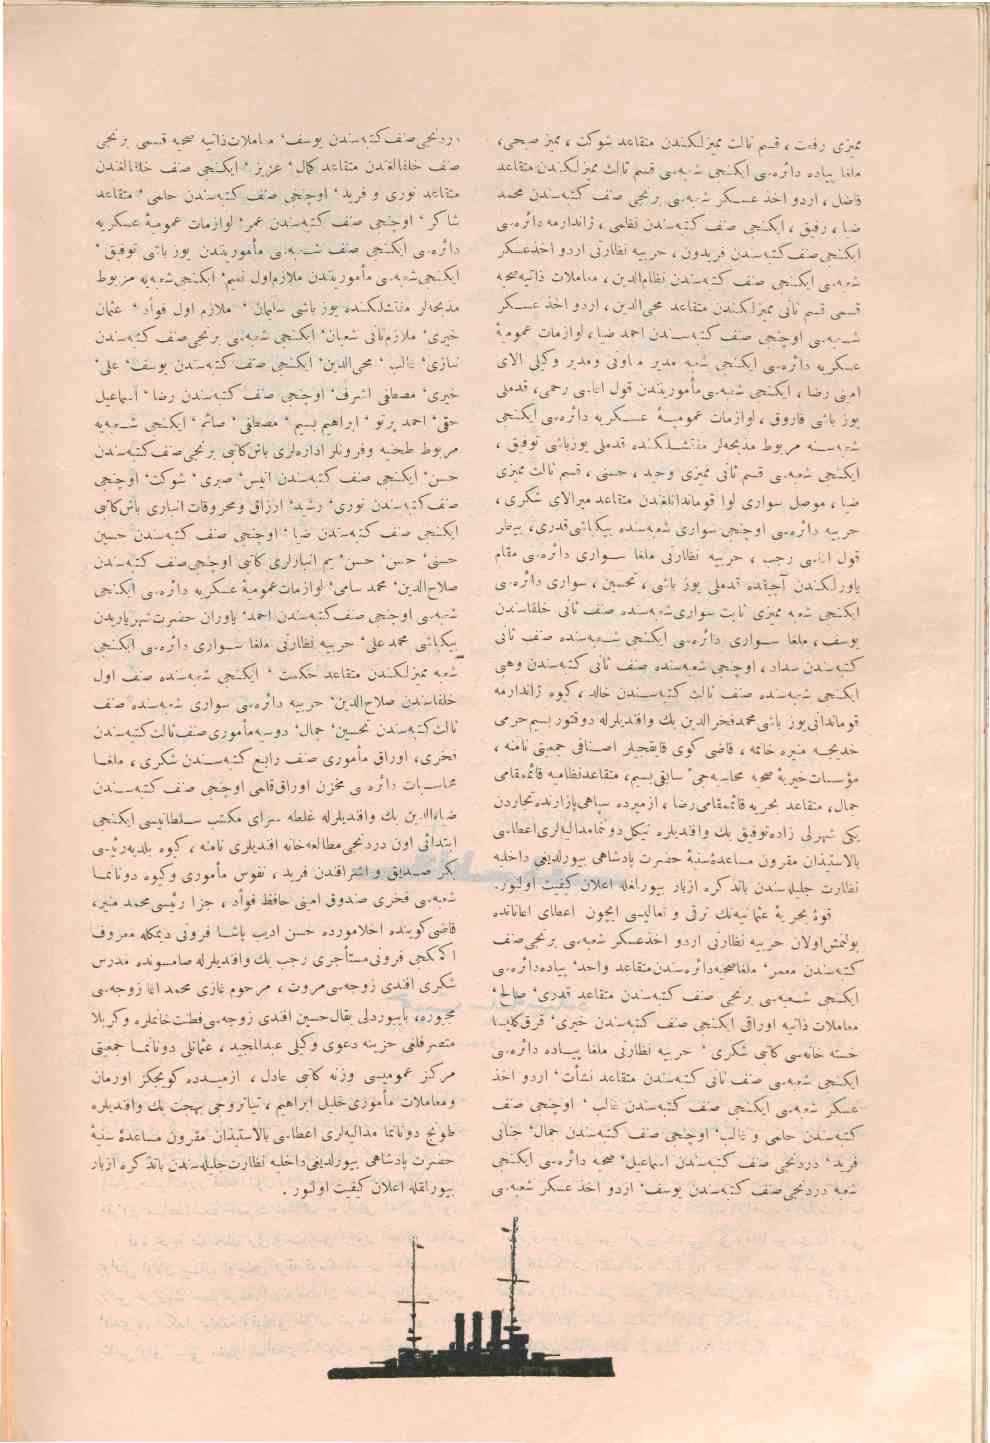 ممیزی رفعت ، قسم ثالث ممیزلکندن متقاعد شوکت ، ممیز صبحی،
ملغا پیاده دائره‌سی ایکنجی شعبه‌سی قسم ثالث ممیزلکندن متقاعد
فاضل ، اردو اخذ عسکر شعبه‌سی برنجی صنف کتبه‌سندن محمد
ضیا ، رفیق ، ایکنجی صنف کتبه‌سندن نظامی ، ژاندارمه دائره‌سی
ایکنجی صنف کتبه‌سندن فریدون ، حربیه نظارتی اردو اخذعسکر
شعبه‌سی ایکنجی صنف کتبه‌سندن نظام‌الدین ، معاملات ذاتیه صحیه
قسمی قسم ثانی ممیزلکندن متقاعد محی‌الدین ، اردو اخذ عسکر
شعبه‌سی اوچنجی صنف کتبه‌سندن احمد ضیا ، لوازمات عمومیهٔ
عسکریه دائره‌سی ایکنجی شعبه مدیر معاونی ومدیر وکیلی الای
امینی رضا ، ایکنجی شعبه‌سی مأموریتدن قول اغاسی رحمی، قدملی
یوز باشی فاروق ، لوازمات عمومیهٔ عسکریه دائره‌سی ایکنجی
شعبه‌سنه مربوط مذبحه‌لر مفتشلکنده قدملی یوزباشی توفیق ،
ایکنجی شعبه‌سی قسم ثانی ممیزی وحید ، حسنی ، قسم ثالث ممیزی
ضیا ، موصل سواری لوا قوماندانلغندن متقاعد میرالای شکری ،
حربیه دائره‌سی اوچنجی سواری شعبه‌سنده بیکباشی قدری، بیطار
قول اغاسی رجب ، حربیه نظارتی ملغا سواری دائره‌سی مقام
یاورلکندن آچیقده قدملی یوز باشی ، تحسین ، سواری دائره‌سی
ایکنجی شعبه ممیزی ثابت سواری شعبه‌سنده صنف ثانی خلفاسندن
یوسف ، ملغا سواری دائره‌سی ایکنجی شعبه‌سنده صنف ثانی
کتبه‌سندن سداد ، اوچنجی شعبه‌سنده صنف ثانی کتبه‌سندن وهبی
ایکنجی شعبه‌سنده صنف ثالث کتبه‌سندن خالد ، کیوه ژاندارمه
قوماندانی یوز باشی محمد فخرالدین بك وافندیلرله دوقتور بسیم حرمی
خدیجه منیره خانمه ، قاضی کوی قایقجیلر اصنافی جمعیتی نامنه ،
مؤسسات خیریهٔ صحیه محاسبه‌جی سابقی بسیم، متقاعد نظامیه قائمقامی
جمال، متقاعد بحریه قائمقامی رضا ، ازمیرده سپاهی بازارنده تجاردن
یکی شهرلی زاده توفیق بك وافندیلره نیکل دوننما مدالیه‌لری اعطاسی
بالاستیذان مقرون مساعدهٔ سنیهٔ حضرت پادشاهی بیورلدیغی داخلیه
نظارت جلیله‌سندن باتذکره ازبار بیورلمغله اعلان کیفیت اولنور.
قوهٔ بحریهٔ عثمانیه‌نك ترقی و تعالیسی ایچون اعطای اعاناتده
بولنمش اولان حربیه نظارتی اردو اخذعسکر شعبه‌سی برنجی صنف
کتبه‌سندن معمر ، ملغا صحیه دائره‌سندن متقاعد واحد ، پیاده دائره‌سی
ایکنجی شعبه‌سی برنجی صنف کتبه‌سندن متقاعد قدری ، صالح ،
معاملات ذاتیه اوراقی ایکنجی صنف کتبه‌سندن خیری ، قرق کلیسا
خسته خانه‌سی کاتبی شکری ، حربیه نظارتی ملغا پیاده دائره‌سی
ایکنجی شعبه‌سی صنف ثانی کتبه‌سندن متقاعد نشأت ، اردو اخذ
عسکر شعبه‌سی ایکنجی صنف کتبه‌سندن غالب ، اوچنجی صنف
کتبه‌سندن حلمی و غالب ، اوچنجی صنف کتبه‌سندن جمال ، جنانی
فرید ، دردنجی صنف کتبه‌سندن اسماعیل ، صحیه دائره‌سی ایکنجی
شعبه دردنجی صنف کتبه‌سندن یوسف ، اردو اخذ عسکر شعبه‌سی
دردنجی صنف کتبه‌سندن یوسف ، معاملات ذاتیه صحیه قسمی برنجی
صنف خلفالغندن متقاعد کمال ، عزیز ، ایکنجی صنف خلفالغندن
متقاعد نوری و فرید ، اوچنجی صنف کتبه‌سندن حلمی ، متقاعد
شاکر ، اوچنجی صنف کتبه‌سندن عمر ، لوازمات عمومیهٔ عسکریه
دائره‌سی ایکنجی صنف شعبه‌سی مأموریتدن یوز باشی توفیق ،
ایکنجی شعبه‌سی مأموریتدن ملازم اول نعیم ، ایکنجی شعبه‌یه مربوط
مذبحه‌لر مفتشلکنده یوز باشی سلیمان ، ملازم اول فواد ، عثمان
خیری ، ملازم ثانی شعبان ، ایکنجی شعبه‌سی برنجی صنف کتبه‌سندن
نیازی ، غالب ، محی‌الدین ، ایکنجی صنف کتبه‌سندن یوسف ، علی ،
خیری ، مصطفی اشرف ، اوچنجی صنف کتبه‌سندن رضا ، اسماعیل
حقی ، احمد پرتو ، ابراهیم بسیم ، مصطفی ، صائم ، ایکنجی شعبه‌یه
مربوط طحنیه وفرونلر اداره‌لری باش کاتبی برنجی صنف کتبه‌سندن
حسن ، ایکنجی صنف کتبه‌سندن انیس ، صبری ، شوکت ، اوچنجی
صنف کتبه‌سندن نوری ، رشید ، ارزاق ومحروقات انباری باش کاتبی
ایکنجی صنف کتبه‌سندن ضیا ، اوچنجی صنف کتبه‌سندن حسین
حسنی ، حسن ، حسن ، یم انبارلری کاتبی اوچنجی صنف کتبه‌سندن
صلاح‌الدین ، محمد سامی ، لوازمات عمومیهٔ عسکریه دائره‌سی ایکنجی
شعبه‌سی اوچنجی صنف کتبه‌سندن احمد ، یاوران حضرت شهریاریدن
بیکباشی محمد علی ، حربیه نظارتی ملغا سواری دائره‌سی ایکنجی
شعبه ممیزلکندن متقاعد حکمت ، ایکنجی شعبه‌سنده صنف اول
خلفاسندن صلاح‌الدین ، حربیه دائره‌سی سواری شعبه‌سنده صنف
ثالث کتبه‌سندن تحسین ، جمال ، دوسیه مأموری صنف ثالث کتبه‌سندن
فخری، اوراق مأموری صنف رابع کتبه‌سندن شکری ، ملغا
محاسبات دائره‌سی مخزن اوراق قلمی اوچنجی صنف کتبه‌سندن
ضیاءالدین بك وافندیلرله غلطه سرای مکتب سلطانیسی ایکنجی
ابتدائی اون دردنجی مطالعه‌خانه افندیلری نامنه ، کیوه بلدیه رئیسی
بکر صدیق و اشرافندن فرید ، نفوس مأموری وکیوه دوننما
شعبه‌سی فخری صندوق امینی حافظ فواد ، جزا رئیسی محمد منیر،
قاضی کوینده اخلامورده حسن ادیب پاشا فرونی دیمکله معروف
اکمکجی فرونی مستأجری رجب بك وافندیلرله صامسونده مدرس
شکری افندی زوجه‌سی مروت ، مرحوم غازی محمد اغا زوجه‌سی
مجبوره، بایبوردلی بقال حسین افندی زوجه‌سی فطنت خانملره وکربلا
متصرفلغی خزینه دعوی وکیلی عبدالمجید ، عثمانلی دوننما جمعیتی
مرکز عمومیسی وزنه کاتبی عادل ، ازمیدده کویجکز اورمان
ومعاملات مأموری خلیل ابراهیم ، تیاتروجی بهجت بك وافندیلره
طونج دوننما مدالیه‌لری اعطاسی بالاستیذان مقرون مساعدهٔ سنیهٔ
حضرت پادشاهی بیورلدیغی داخلیه نظارت جلیله‌سندن باتذکره ازبار
بیورلمغله اعلان کیفیت اولنور .